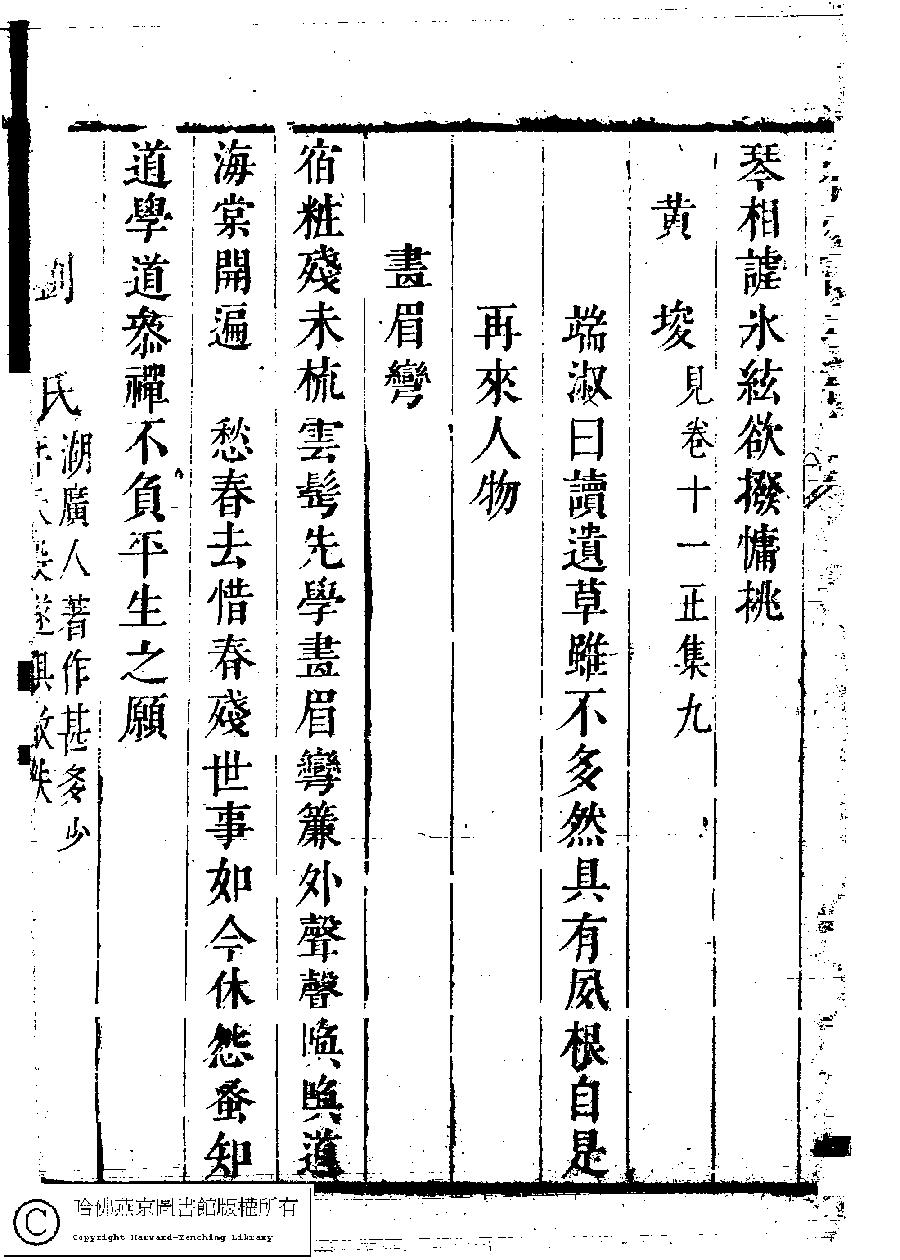 琴相謔氷絃欲撥慵挑
黄　埈　見卷十一正集九
端淑曰讀遺草雖不多然具有夙根自是
再來人物
畫眉彎
宿粧殘未梳雲髩先學畫眉彎簾外聲聲喚喚道
海棠開遍　愁春去惜春殘世事如今休怨蚤知
道學道叅禪不負平生之願
劉　氏　湖廣人著作甚多少
遂俱散佚
哈佛燕京圖書館版權所有
Copyright Harvard-Yenching Library